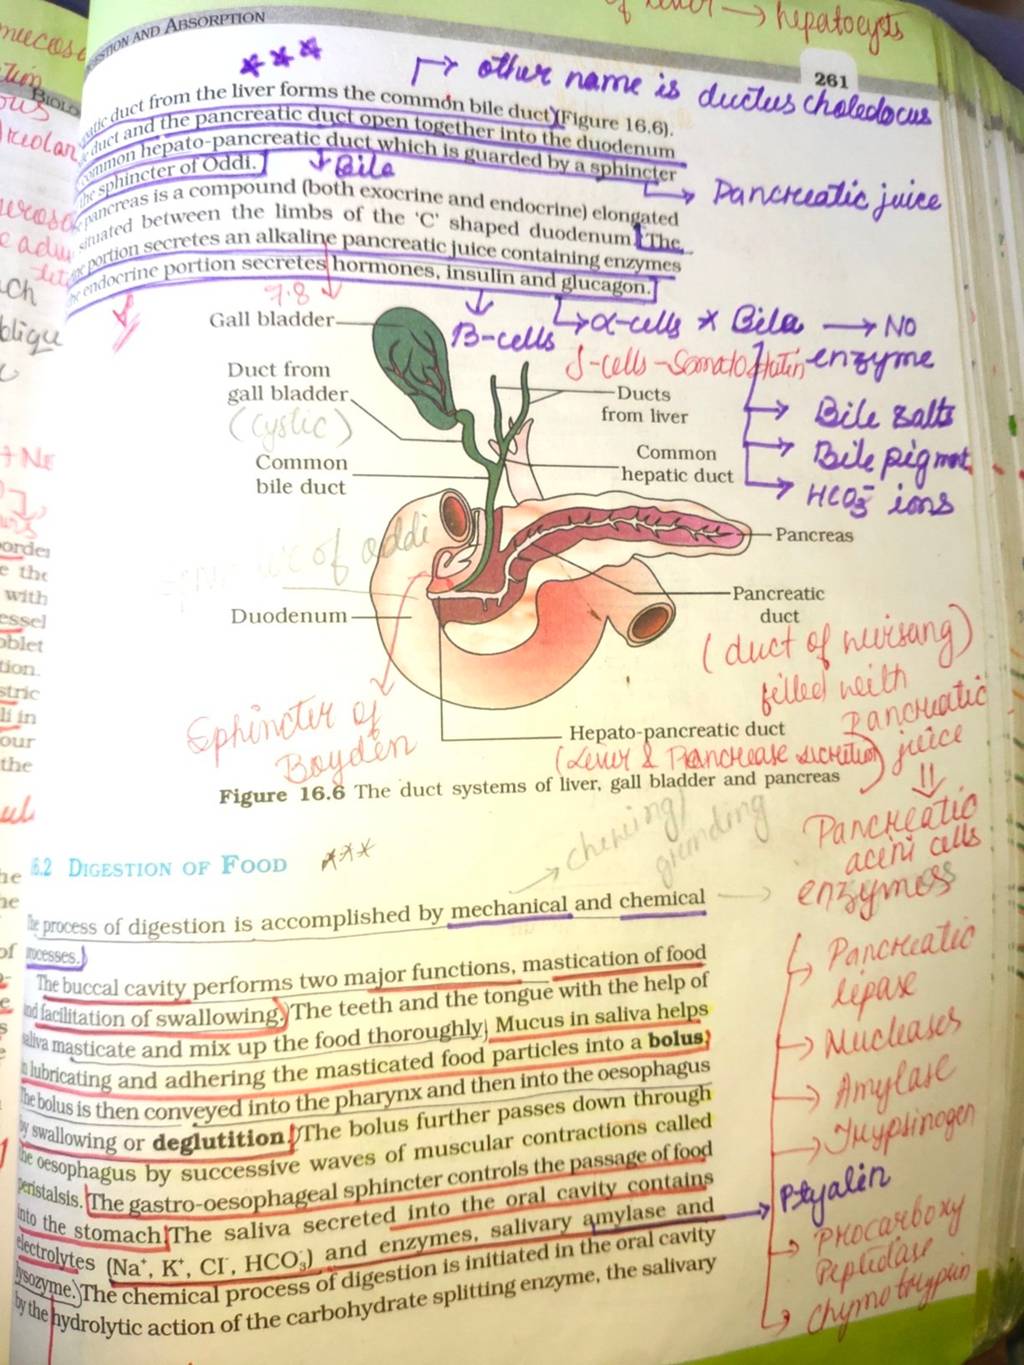 of liver → hepatocysts
DIGESTION AND ABSORPTION
261
*** → other name is ductus choledocus
duct from the liver forms the common bile duct (Figure 16.6).
duct and the pancreatic duct open together into the duodenum
common hepato-pancreatic duct which is guarded by a sphincter
the sphincter of Oddi.
↓ Bile
→ Pancreatic juice
pancreas is a compound (both exocrine and endocrine) elongated
situated between the limbs of the 'C' shaped duodenum. The
portion secretes an alkaline pancreatic juice containing enzymes
the endocrine portion secretes hormones, insulin and glucagon.
7.8
B-cells
→ α-cells
δ-cells - Somatostatin
* Bile → NO
enzyme
→ Bile salts
→ Bile pigment
→ HCO3- ions
Gall bladder
Duct from
gall bladder
(cystic)
Ducts
from liver
Common
hepatic duct
Common
bile duct
of oddi
Pancreas
Duodenum
Pancreatic
duct
(duct of wirsang)
filled with
Pancreatic
juice
Sphincter of
Boyden
Hepato-pancreatic duct
(Liver & Pancrease secretion)
Figure 16.6 The duct systems of liver, gall bladder and pancreas
⇓
Pancreatic
acini cells
enzymes
→ Pancreatic
lipase
→ Nucleases
→ Amylase
→ Trypsinogen
→ Procarboxy
Peptidase
→ chymotrypsin
16.2 DIGESTION OF FOOD ***
→ chewing/
grinding
The process of digestion is accomplished by mechanical and chemical
processes.
The buccal cavity performs two major functions, mastication of food
and facilitation of swallowing. The teeth and the tongue with the help of
saliva masticate and mix up the food thoroughly. Mucus in saliva helps
in lubricating and adhering the masticated food particles into a bolus.
The bolus is then conveyed into the pharynx and then into the oesophagus
by swallowing or deglutition. The bolus further passes down through
the oesophagus by successive waves of muscular contractions called
peristalsis. The gastro-oesophageal sphincter controls the passage of food
into the stomach. The saliva secreted into the oral cavity contains
electrolytes (Na+, K+, Cl-, HCO3-) and enzymes, salivary amylase and
→ Ptyalin
lysozyme. The chemical process of digestion is initiated in the oral cavity
by the hydrolytic action of the carbohydrate splitting enzyme, the salivary